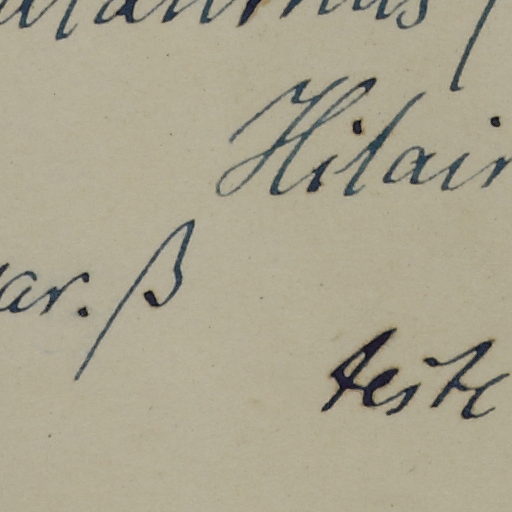 Hilair
var. β
teste